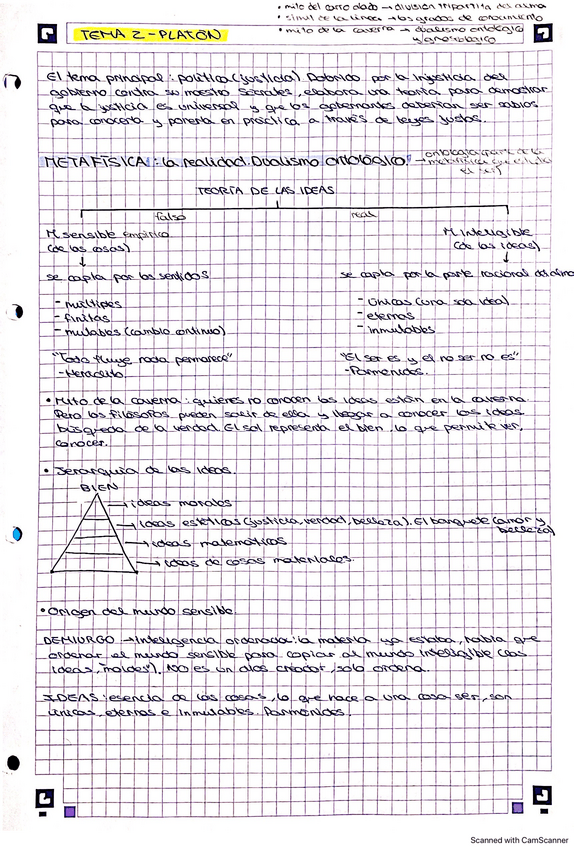 • mito del carro alado → división tripartita del alma
• símil de la línea → los grados de conocimiento
• mito de la caverna → dualismo ontológico y gnoseológico
TEMA 2 - PLATÓN
El tema principal: política (justicia). Dolorido por la injusticia del
gobierno contra su maestro Sócrates, elabora una teoría para demostrar
que la justicia es universal y que los gobernantes deberían ser sabios
para conocerla y ponerla en práctica a través de leyes justas.
METAFÍSICA: la realidad. Dualismo ontológico. → ontología (parte de la
metafísica que estudia
el ser)
TEORÍA DE LAS IDEAS
falso real
M sensible empírico M inteligible
(de las cosas) (de las ideas)
↓ ↓
se capta por los sentidos se capta por la parte racional del alma
- múltiples - únicas (una sola idea)
- finitas - eternas
- mutables (cambio continuo) - inmutables
"Todo fluye nada permanece" "El ser es y el no ser no es"
- Heráclito. - Parménides.
• Mito de la caverna: quienes no conocen las ideas están en la caverna.
Pero los filósofos pueden salir de ella y llegar a conocer las ideas
búsqueda de la verdad. El sol representa el bien, lo que permite ver,
conocer.
• Jerarquía de las ideas.
BIEN
→ ideas morales
→ ideas estéticas (justicia, verdad, belleza). El banquete (amor y
belleza)
→ ideas matemáticas
→ ideas de cosas materiales.
• Origen del mundo sensible.
DEMIURGO → Inteligencia ordenada: la materia ya estaba, había que
ordenar el mundo sensible para copiar al mundo inteligible (las
ideas, "moldes"). NO es un dios creador, solo ordena.
IDEAS: esencia de las cosas, lo que hace a una cosa ser, son
únicas, eternas e inmutables. Parménides.
Scanned with CamScanner